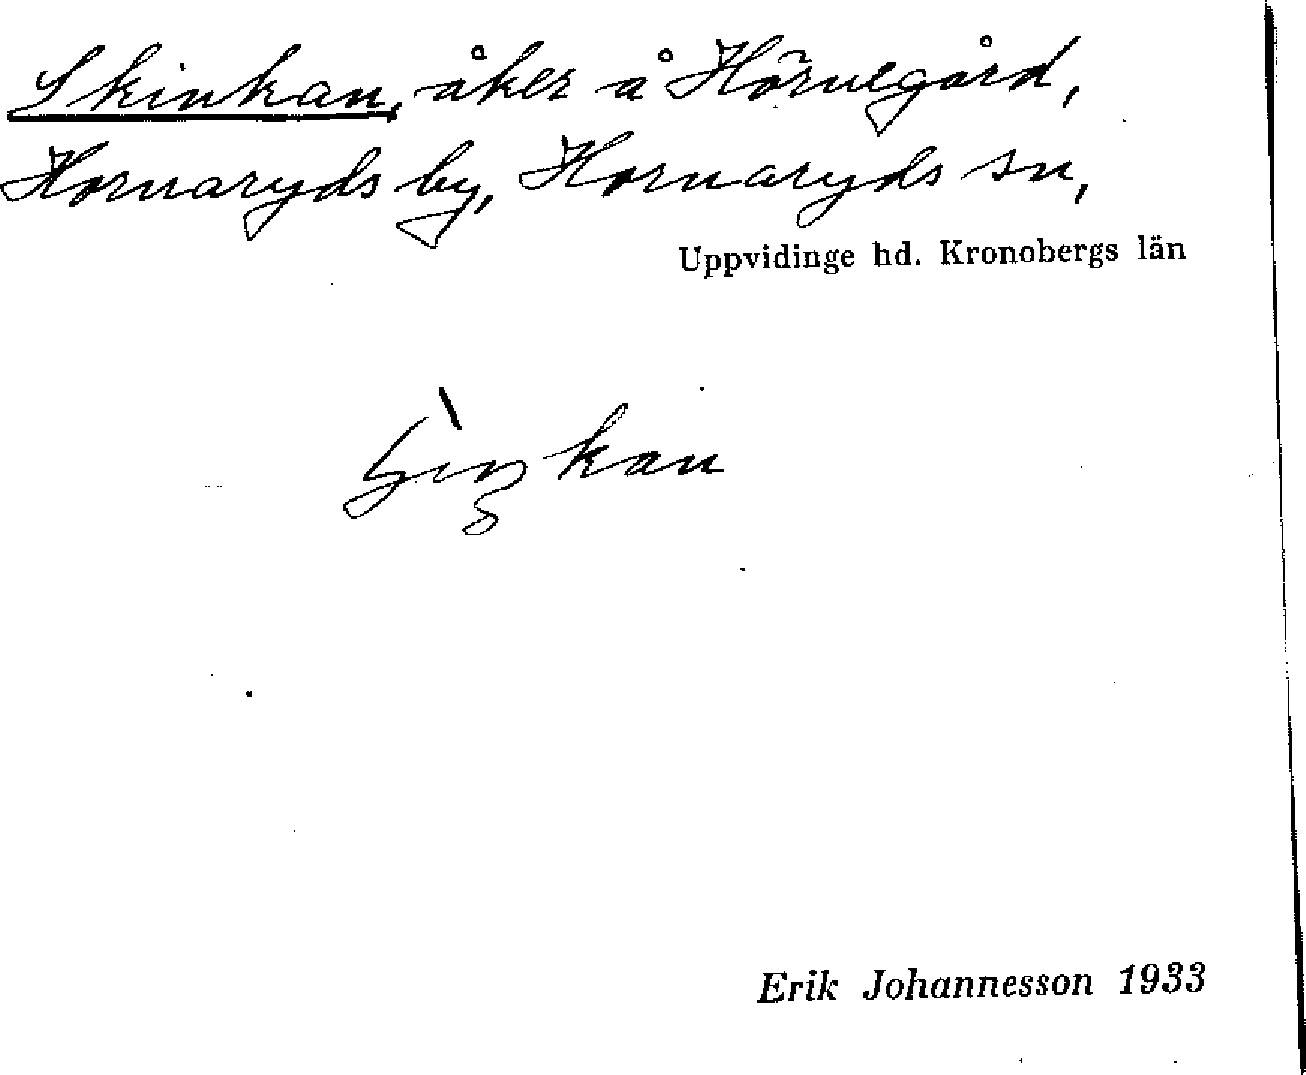 Skinkan, åker å Hörnegård,
Hornaryds by, Hornaryds sn,
Uppvidinge hd. Kronobergs län
Erik Johannesson 1933